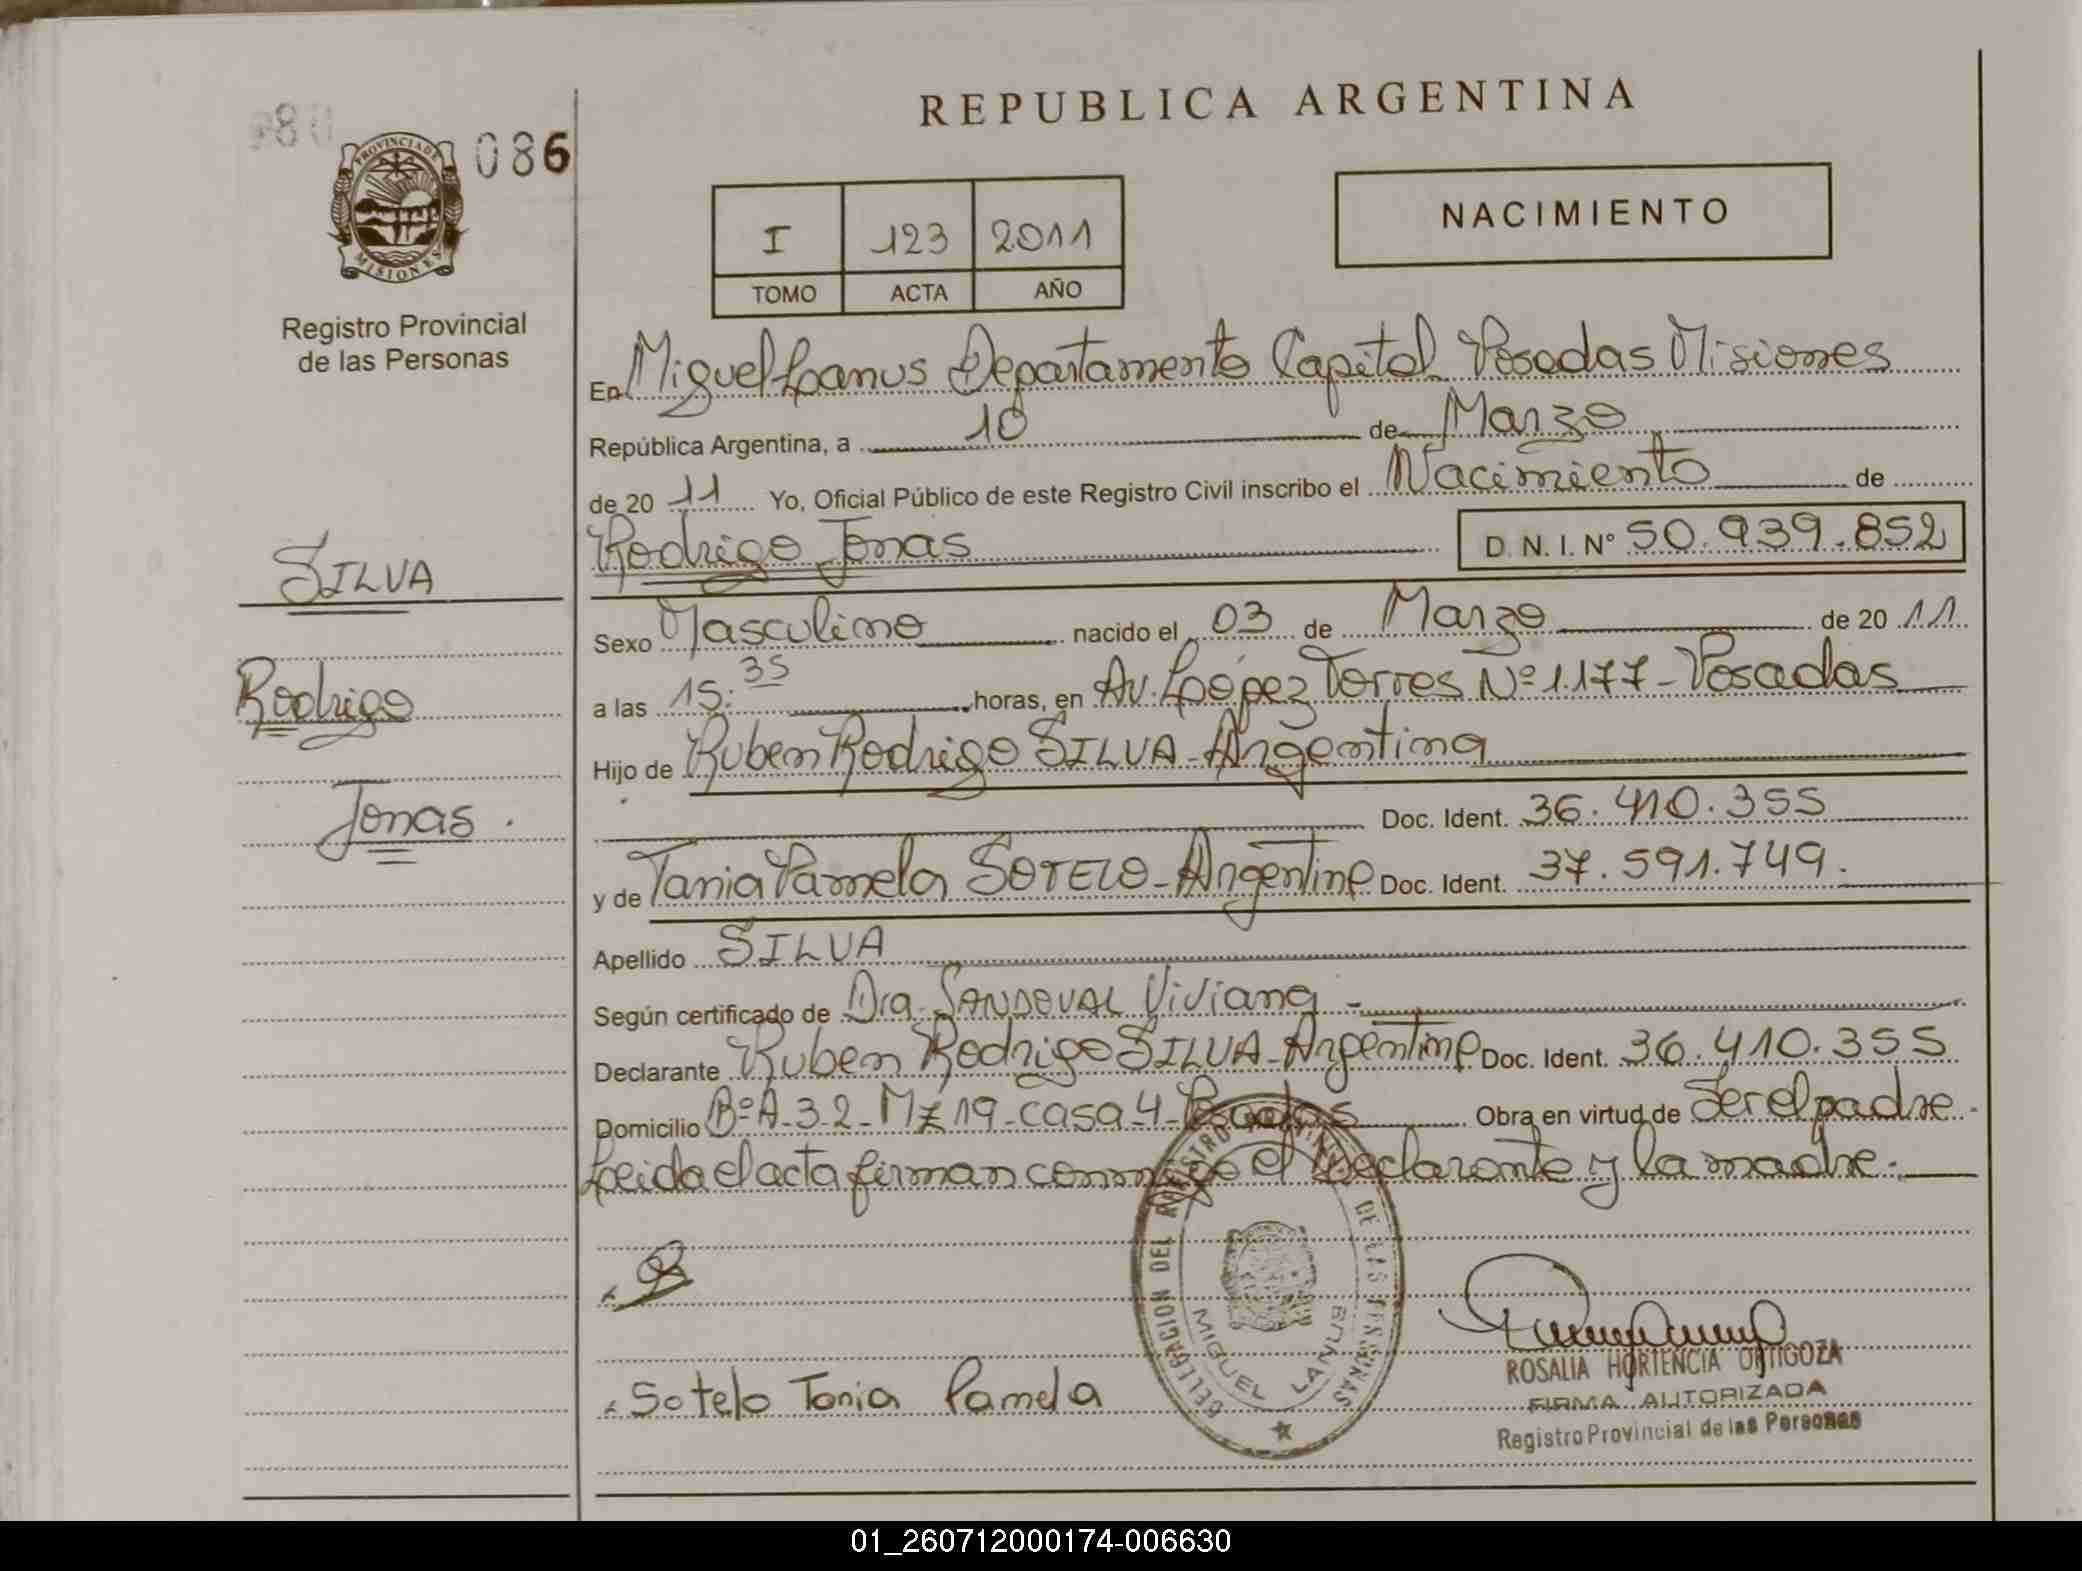 REPUBLICA ARGENTINA
086
PROVINCIA DE
MISIONES
Registro Provincial
de las Personas
I 123 2011
TOMO ACTA AÑO
NACIMIENTO
En Miguel Lanus Departamento Capital Posadas Misiones
República Argentina, a 10 de Marzo
de 20 11 Yo, Oficial Público de este Registro Civil inscribo el Nacimiento de
Rodrigo Jonas D. N. I. Nº 50.939.852
SILVA
Rodrigo
Jonas.
Sexo Masculino nacido el 03 de Marzo de 20 11
a las 15:35 horas, en Av. López Torres Nº 1.177-Posadas
Hijo de Ruben Rodrigo SILVA-Argentina
Doc. Ident. 36.410.355
y de Tania Pamela SOTELO-Argentina Doc. Ident. 37.591.749.
Apellido SILVA
Según certificado de Dra. SANDOVAL Viviana -
Declarante Ruben Rodrigo SILVA-Argentina Doc. Ident. 36.410.355
Domicilio Bº A-3-2-Mz 19-casa-4-Posadas Obra en virtud de Ser el padre.
Leida el acta firman conmigo el declarante y la madre.
DELEGACION DEL REGISTRO PROVINCIAL DE LAS PERSONAS
MIGUEL LANUS
Sotelo Tania Pamela
ROSALIA HORTENCIA ORTIGOZA
FIRMA AUTORIZADA
Registro Provincial de las Personas
01_260712000174-006630